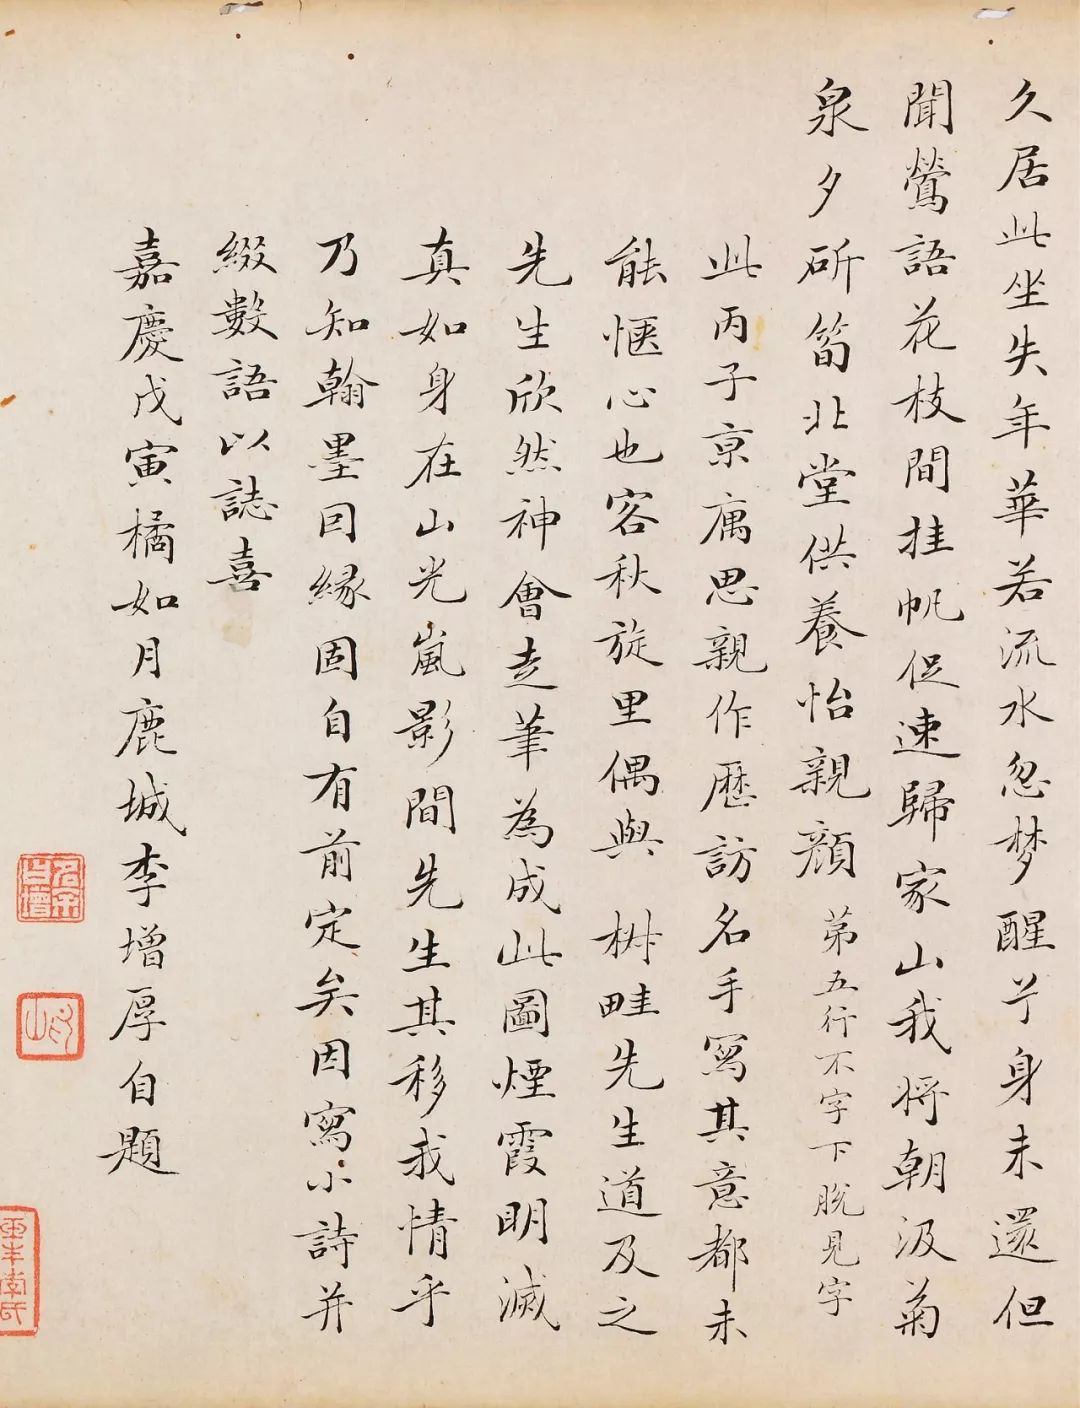 久居此坐失年華若流水忽梦醒兮身未還但
聞鶯語花枝間挂帆促速歸家山我將朝汲菊
泉夕斫筍北堂供養怡親顏 弟五行不字下脫見字
此丙子京寓思親作歷訪名手寫其意都未
能愜心也客秋旋里偶與 樹畦先生道及之
先生欣然神會走筆為成此圖煙霞明滅
真如身在山光嵐影間先生其移我情乎
乃知翰墨因緣固自有前定矣因寫小詩并
綴數語以誌喜
嘉慶戊寅橘如月鹿城李增厚自題